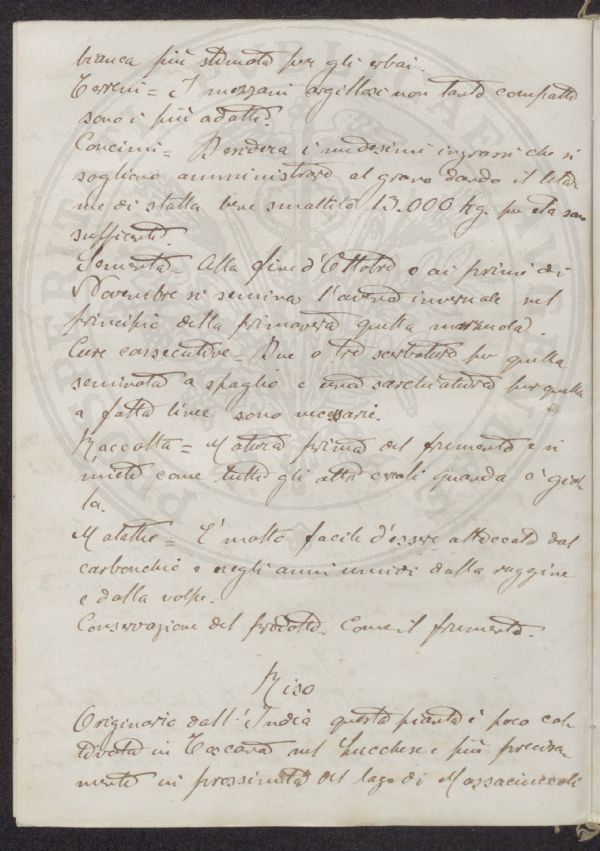 bianca più stimata per gli erbai.
Terreni = I mezzani argillosi non tanto compatti
sono i più adatti.
Concimi = Desidera i medesimi ingrassi che si
sogliono amministrare al grano dando il leta
me di stalla bene smaltito 13.000 kg. per eta sono
sufficienti.
Sementa = Alla fine d'Ottobre e ai primi di
Novembre si semina l'avena invernale nel
principio della primavera quella marzuola.
Cure consecutive = Due o tre per quella
seminata a spaglio e una sarchiatura per quella
a fatta linee sono necessarie.
Raccolta = Matura prima del frumento e si
miete come tutti gli altri cereali quando è gial
la.
Malattie = E' molto facile d'essere attaccata dal
carbonchio e negli anni umidi dalla ruggine
e dalla volpe.
Conservazione del prodotto. Come il frumento.
Riso
Originario dall'India questa pianta è poco col
tivata in Toscana nel Lucchese e più precisa
mente in prossimità del lago di Massaciuccoli